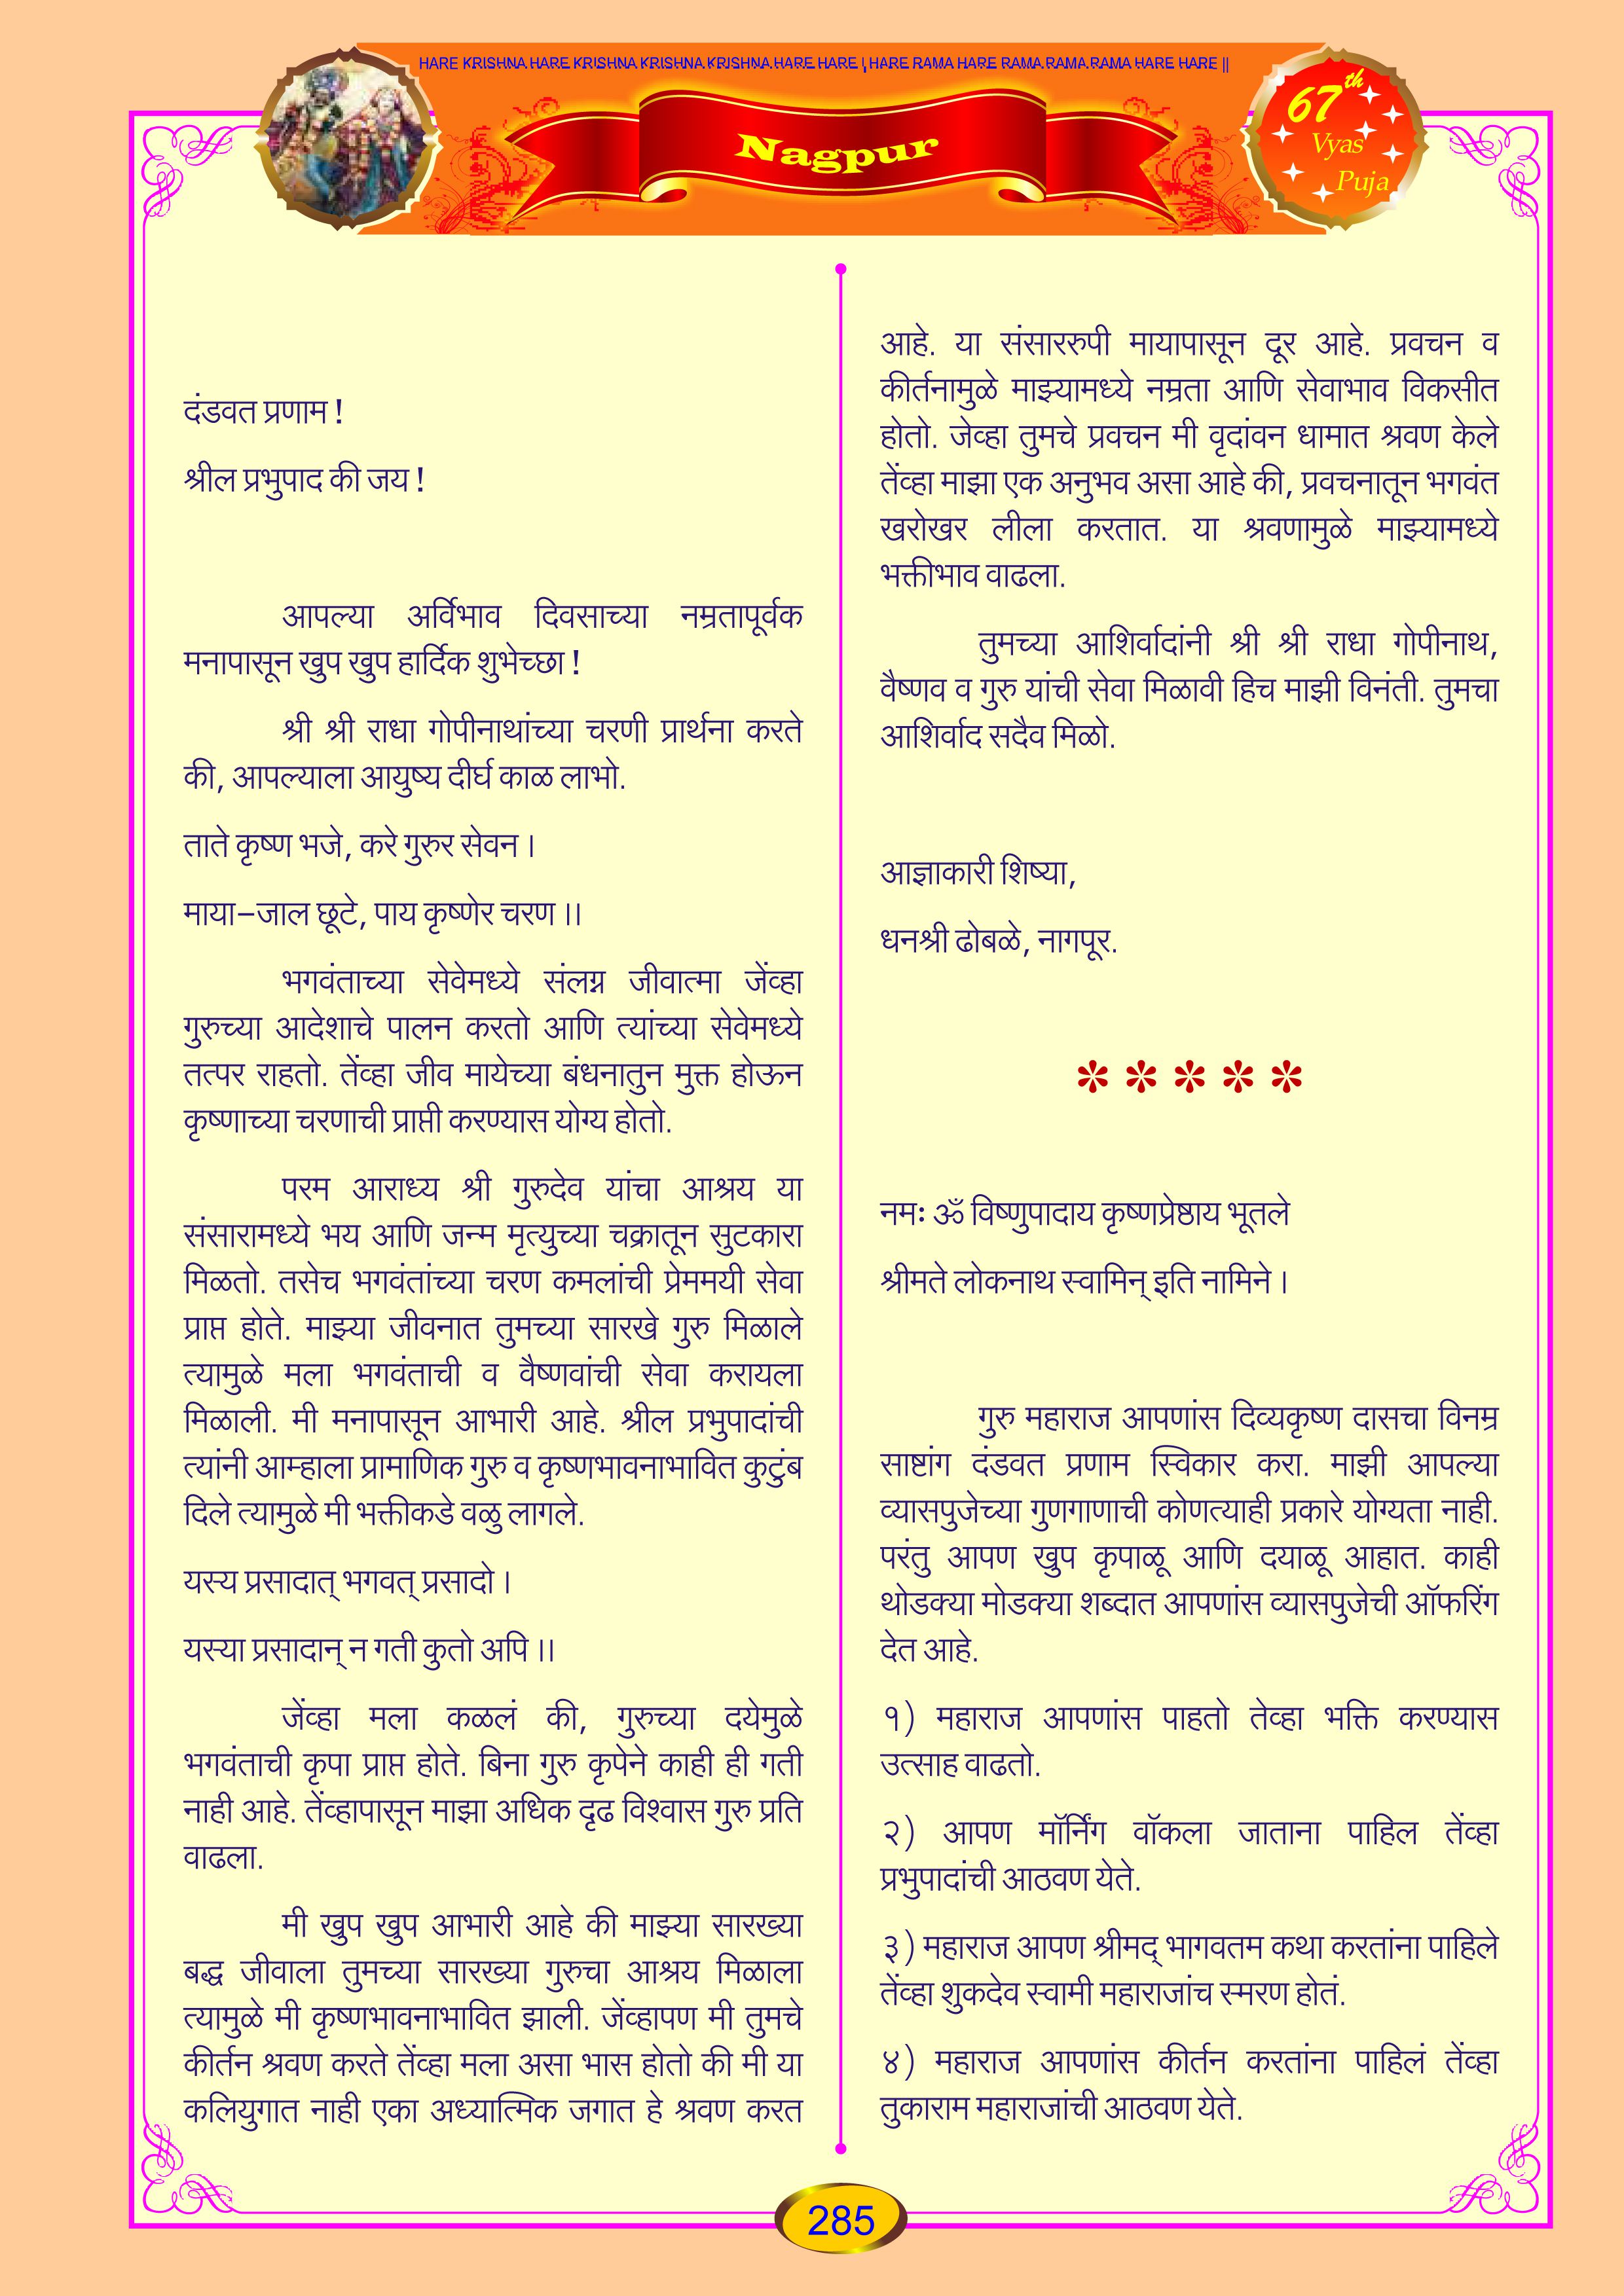 HARE KRISHNA HARE KRISHNA KRISHNA KRISHNA HARE HARE | HARE RAMA HARE RAMA RAMA RAMA HARE HARE ||
Nagpur
67th
Vyas
Puja
दंडवत प्रणाम !
श्रील प्रभुपाद की जय !
आपल्या अर्विभाव दिवसाच्या नम्रतापूर्वक
मनापासून खुप खुप हार्दिक शुभेच्छा !
श्री श्री राधा गोपीनाथांच्या चरणी प्रार्थना करते
की, आपल्याला आयुष्य दीर्घ काळ लाभो.
ताते कृष्ण भजे, करे गुरुर सेवन ।
माया–जाल छूटे, पाय कृष्णेर चरण ।।
भगवंताच्या सेवेमध्ये संलग्न जीवात्मा जेंव्हा
गुरुच्या आदेशाचे पालन करतो आणि त्यांच्या सेवेमध्ये
तत्पर राहतो. तेंव्हा जीव मायेच्या बंधनातुन मुक्त होऊन
कृष्णाच्या चरणाची प्राप्ती करण्यास योग्य होतो.
परम आराध्य श्री गुरुदेव यांचा आश्रय या
संसारामध्ये भय आणि जन्म मृत्युच्या चक्रातून सुटकारा
मिळतो. तसेच भगवंतांच्या चरण कमलांची प्रेममयी सेवा
प्राप्त होते. माझ्या जीवनात तुमच्या सारखे गुरु मिळाले
त्यामुळे मला भगवंताची व वैष्णवांची सेवा करायला
मिळाली. मी मनापासून आभारी आहे. श्रील प्रभुपादांची
त्यांनी आम्हाला प्रामाणिक गुरु व कृष्णभावनाभावित कुटुंब
दिले त्यामुळे मी भक्तीकडे वळु लागले.
यस्य प्रसादात् भगवत् प्रसादो ।
यस्या प्रसादान् न गती कुतो अपि ।।
जेंव्हा मला कळलं की, गुरुच्या दयेमुळे
भगवंताची कृपा प्राप्त होते. बिना गुरु कृपेने काही ही गती
नाही आहे. तेंव्हापासून माझा अधिक दृढ विश्वास गुरु प्रति
वाढला.
मी खुप खुप आभारी आहे की माझ्या सारख्या
बद्ध जीवाला तुमच्या सारख्या गुरुचा आश्रय मिळाला
त्यामुळे मी कृष्णभावनाभावित झाली. जेंव्हापण मी तुमचे
कीर्तन श्रवण करते तेंव्हा मला असा भास होतो की मी या
कलियुगात नाही एका अध्यात्मिक जगात हे श्रवण करत
आहे. या संसाररुपी मायापासून दूर आहे. प्रवचन व
कीर्तनामुळे माझ्यामध्ये नम्रता आणि सेवाभाव विकसीत
होतो. जेव्हा तुमचे प्रवचन मी वृदांवन धामात श्रवण केले
तेंव्हा माझा एक अनुभव असा आहे की, प्रवचनातून भगवंत
खरोखर लीला करतात. या श्रवणामुळे माझ्यामध्ये
भक्तीभाव वाढला.
तुमच्या आशिर्वादांनी श्री श्री राधा गोपीनाथ,
वैष्णव व गुरु यांची सेवा मिळावी हिच माझी विनंती. तुमचा
आशिर्वाद सदैव मिळो.
आज्ञाकारी शिष्या,
धनश्री ढोबळे, नागपूर.
* * * * *
नमः ॐ विष्णुपादाय कृष्णप्रेष्ठाय भूतले
श्रीमते लोकनाथ स्वामिन् इति नामिने ।
गुरु महाराज आपणांस दिव्यकृष्ण दासचा विनम्र
साष्टांग दंडवत प्रणाम स्विकार करा. माझी आपल्या
व्यासपुजेच्या गुणगाणाची कोणत्याही प्रकारे योग्यता नाही.
परंतु आपण खुप कृपाळू आणि दयाळू आहात. काही
थोडक्या मोडक्या शब्दात आपणांस व्यासपुजेची ऑफरिंग
देत आहे.
१) महाराज आपणांस पाहतो तेव्हा भक्ति करण्यास
उत्साह वाढतो.
२) आपण मॉर्निंग वॉकला जाताना पाहिल तेंव्हा
प्रभुपादांची आठवण येते.
३) महाराज आपण श्रीमद् भागवतम कथा करतांना पाहिले
तेंव्हा शुकदेव स्वामी महाराजांच स्मरण होतं.
४) महाराज आपणांस कीर्तन करतांना पाहिलं तेंव्हा
तुकाराम महाराजांची आठवण येते.
285